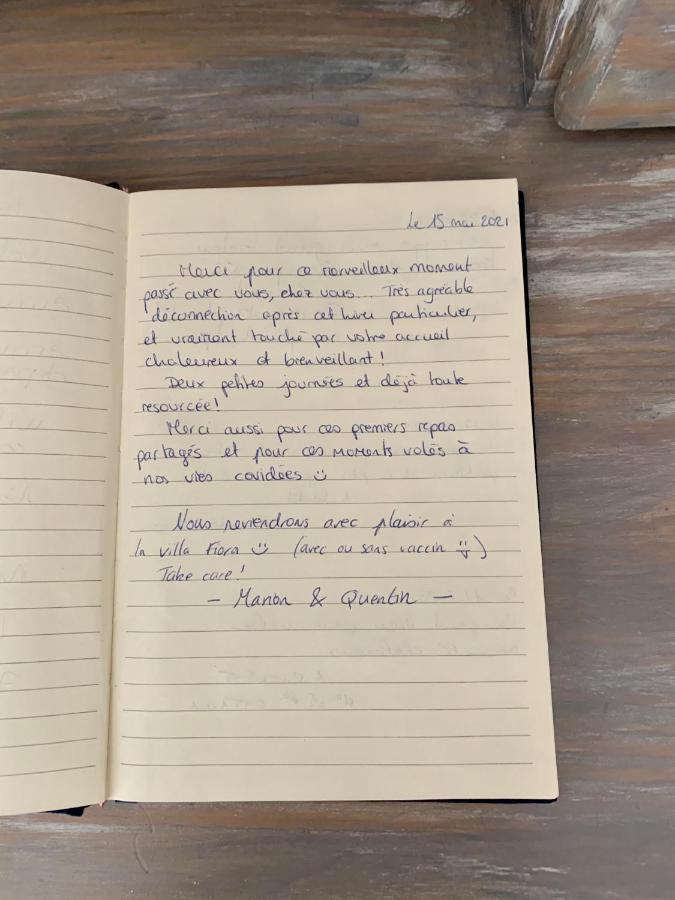 Le 15 mai 2021
Merci pour ce merveilleux moment
passé avec vous, chez vous... Très agréable
déconnection après cet hiver particulier,
et vraiment touché par votre accueil
chaleureux et bienveillant !
Deux petites journées et déjà toute
resourcée !
Merci aussi pour ces premiers repas
partagés et pour ces moments volés à
nos vies covidées :)
Nous reviendrons avec plaisir à
la villa Fiora :) (avec ou sans vaccin :))
Take care !
- Manon & Quentin -